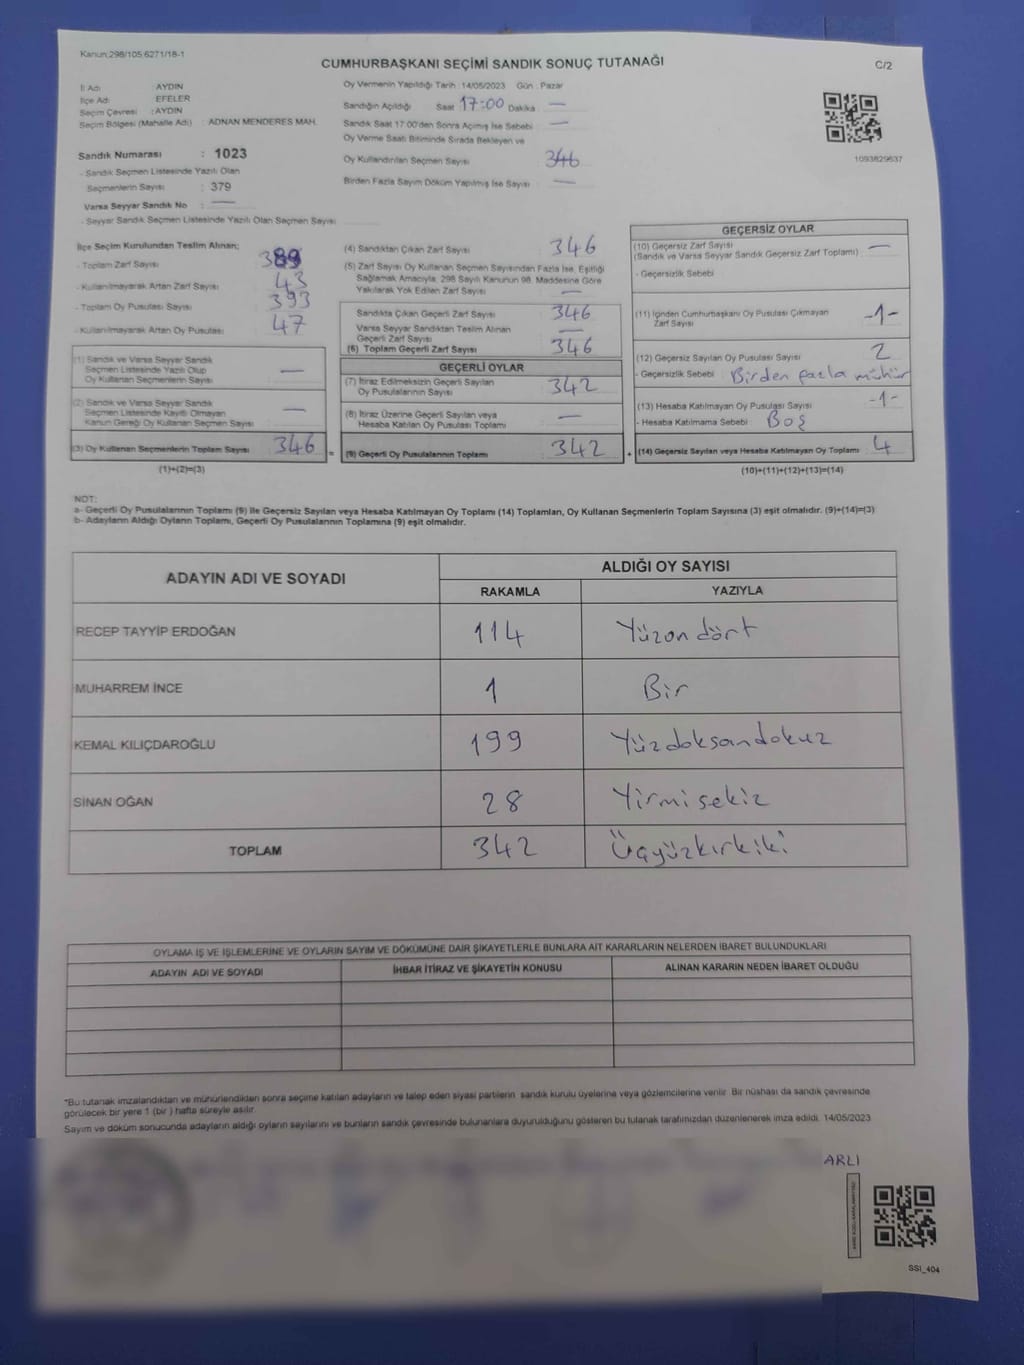 Kanun:298/105;6271/18-1
CUMHURBAŞKANI SEÇİMİ SANDIK SONUÇ TUTANAĞI
C/2
İl Adı : AYDIN
İlçe Adı : EFELER
Seçim Çevresi : AYDIN
Seçim Bölgesi (Mahalle Adı) : ADNAN MENDERES MAH.
Sandık Numarası : 1023
- Sandık Seçmen Listesinde Yazılı Olan
Seçmenlerin Sayısı : 379
Varsa Seyyar Sandık No : —
- Seyyar Sandık Seçmen Listesinde Yazılı Olan Seçmen Sayısı
Oy Vermenin Yapıldığı Tarih : 14/05/2023 Gün : Pazar
Sandığın Açıldığı Saat 17:00 Dakika : —
Sandık Saat 17:00'den Sonra Açımış İse Sebebi : —
Oy Verme Saati Bitiminde Sırada Bekleyen ve
Oy Kullandırılan Seçmen Sayısı : 346
Birden Fazla Sayım Döküm Yapılmış İse Sayısı : —
1093829637
İlçe Seçim Kurulundan Teslim Alınan;
- Toplam Zarf Sayısı : 389
- Kullanılmayarak Artan Zarf Sayısı : 43
- Toplam Oy Pusulası Sayısı : 393
- Kullanılmayarak Artan Oy Pusulası : 47
(1) Sandık ve Varsa Seyyar Sandık
Seçmen Listesinde Yazılı Olup
Oy Kullanan Seçmenlerin Sayısı : —
(2) Sandık ve Varsa Seyyar Sandık
Seçmen Listesinde Kayıtlı Olmayan
Kanun Gereği Oy Kullanan Seçmen Sayısı : —
(3) Oy Kullanan Seçmenlerin Toplam Sayısı : 346 =
(1)+(2)=(3)
(4) Sandıktan Çıkan Zarf Sayısı : 346
(5) Zarf Sayısı Oy Kullanan Seçmen Sayısından Fazla İse, Eşitliği
Sağlamak Amacıyla, 298 Sayılı Kanunun 98. Maddesine Göre
Yakılarak Yok Edilen Zarf Sayısı : —
Sandıkta Çıkan Geçerli Zarf Sayısı : 346
Varsa Seyyar Sandıktan Teslim Alınan
Geçerli Zarf Sayısı : —
(6) Toplam Geçerli Zarf Sayısı : 346
GEÇERLİ OYLAR
(7) İtiraz Edilmeksizin Geçerli Sayılan
Oy Pusulasının Sayısı : 342
(8) İtiraz Üzerine Geçerli Sayılan veya
Hesaba Katılan Oy Pusulası Toplamı : —
(9) Geçerli Oy Pusulalarının Toplamı : 342 +
GEÇERSİZ OYLAR
(10) Geçersiz Zarf Sayısı
(Sandık ve Varsa Seyyar Sandık Geçersiz Zarf Toplamı) : —
- Geçersizlik Sebebi :
(11) İçinden Cumhurbaşkanı Oy Pusulası Çıkmayan
Zarf Sayısı : -1-
(12) Geçersiz Sayılan Oy Pusulası Sayısı : 2
- Geçersizlik Sebebi : Birden fazla mühür
(13) Hesaba Katılmayan Oy Pusulası Sayısı : -1-
- Hesaba Katılmama Sebebi : Boş
(14) Geçersiz Sayılan veya Hesaba Katılmayan Oy Toplamı : 4
(10)+(11)+(12)+(13)=(14)
NOT:
a- Geçerli Oy Pusulalarının Toplamı (9) ile Geçersiz Sayılan veya Hesaba Katılmayan Oy Toplamı (14) Toplamları, Oy Kullanan Seçmenlerin Toplam Sayısına (3) eşit olmalıdır. (9)+(14)=(3)
b- Adayların Aldığı Oyların Toplamı, Geçerli Oy Pusulalarının Toplamına (9) eşit olmalıdır.
ADAYIN ADI VE SOYADI
ALDIĞI OY SAYISI
RAKAMLA YAZIYLA
RECEP TAYYİP ERDOĞAN 114 Yüzon dört
MUHARREM İNCE 1 Bir
KEMAL KILIÇDAROĞLU 199 Yüzdoksandokuz
SİNAN OĞAN 28 Yirmi sekiz
TOPLAM 342 Üçyüzkırkiki
OYLAMA İŞ VE İŞLEMLERİNE VE OYLARIN SAYIM VE DÖKÜMÜNE DAİR ŞİKAYETLERLE BUNLARA AİT KARARLARIN NELERDEN İBARET BULUNDUKLARI
ADAYIN ADI VE SOYADI İHBAR İTİRAZ VE ŞİKAYETİN KONUSU ALINAN KARARIN NEDEN İBARET OLDUĞU
*Bu tutanak imzalandıktan ve mühürlendikten sonra seçime katılan adayların ve talep eden siyasi partilerin sandık kurulu üyelerine veya gözlemcilerine verilir. Bir nüshası da sandık çevresinde
görülecek bir yere 1 (bir ) hafta süreyle asılır.
Sayım ve döküm sonucunda adayların aldığı oyların sayılarını ve bunların sandık çevresinde bulunanlara duyurulduğunu gösteren bu tutanak tarafımızdan düzenlenerek imza edildi. 14/05/2023
ARLI
SSI_404